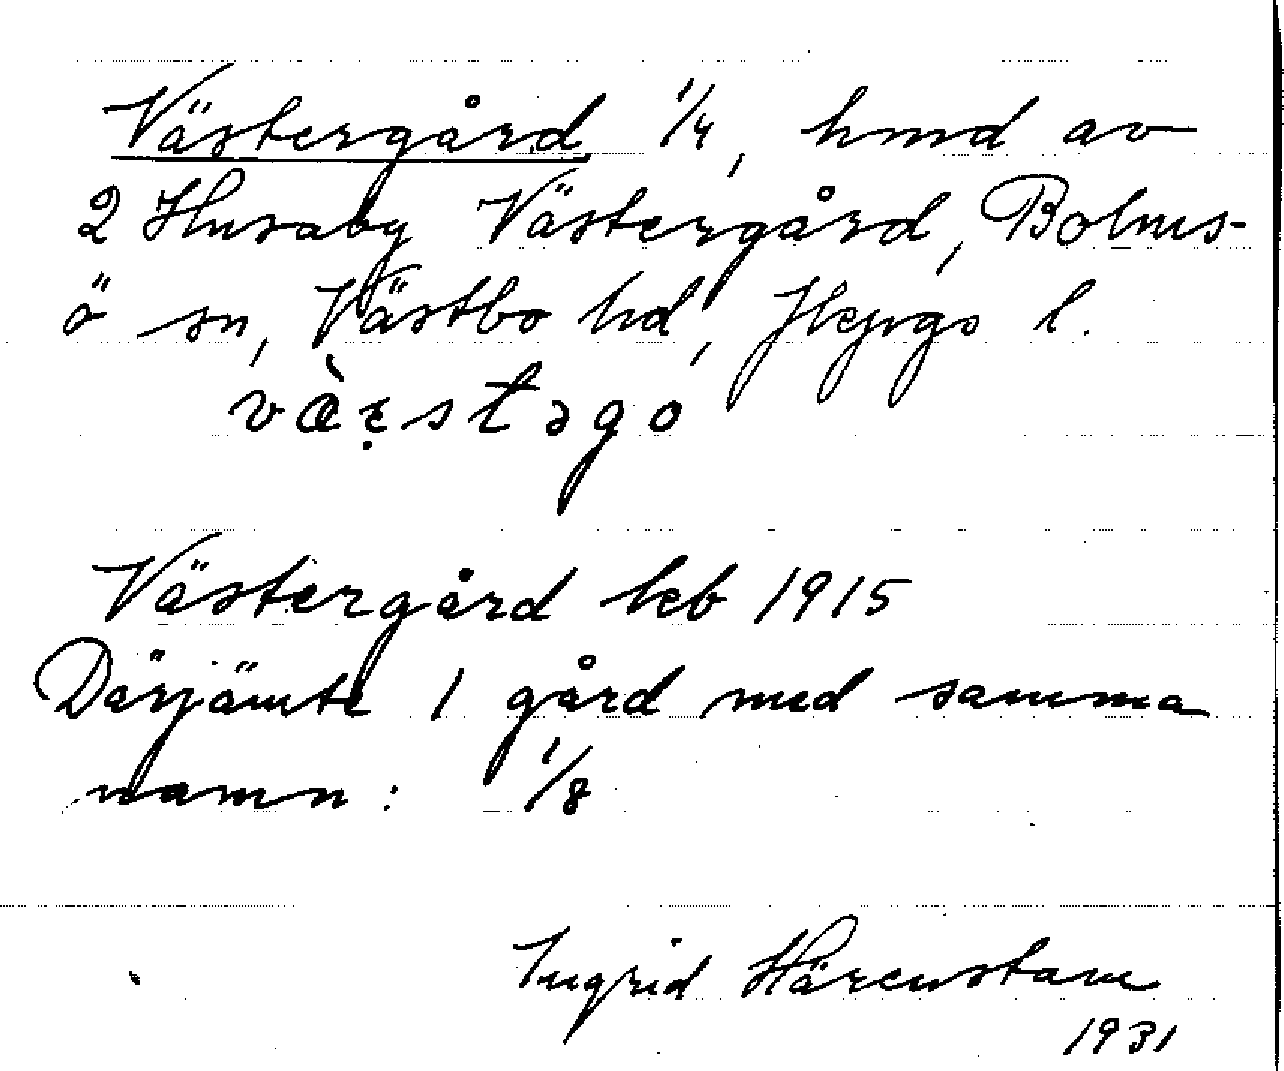 Västergård 1/4, hmd av
2 Husaby Västergård, Bolms-
ö sn, Västbo hd, Jkpgs l.
Västergård leb 1915
Därjämte 1 gård med samma
namn: 1/8
Ingrid Härenstam
1931